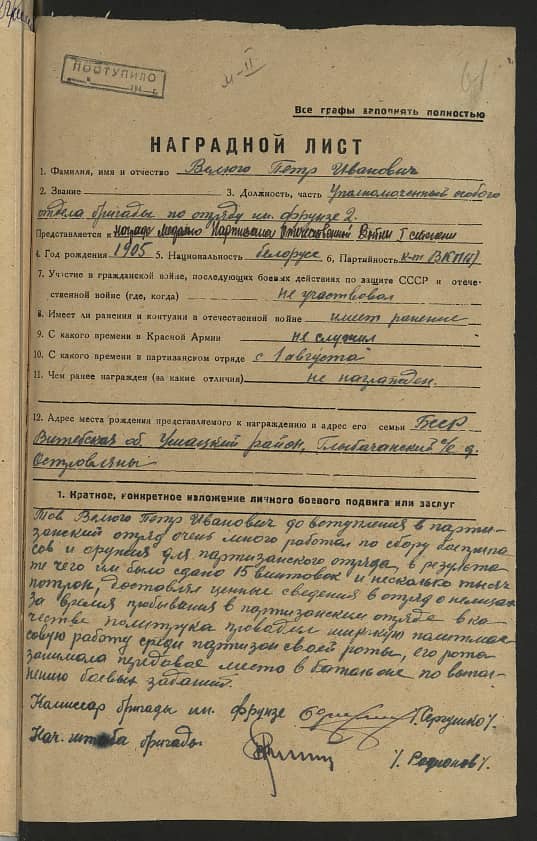 ПОСТУПИЛО
М-II
61
Все графы заполнять полностью
НАГРАДНОЙ ЛИСТ
1. Фамилия, имя и отчество Велюго Петр Иванович
2. Звание 3. Должность, часть Уполномоченный особого
отдела бригады по отряду им. Фрунзе 2.
Представляется к награде медалью Партизана Отечественной Войны I степени
4. Год рождения 1905 5. Национальность белорус 6. Партийность к-т ВКП(б)
7. Участие в гражданской войне, последующих боевых действиях по защите СССР и отече-
ственной войне (где, когда) не участвовал
8. Имеет ли ранения и контузии в отечественной войне имеет ранение
9. С какого времени в Красной Армии не служил
10. С какого времени в партизанском отряде с 1 августа
11. Чем ранее награжден (за какие отличия) не награжден.
12. Адрес места рождения представляемого к награждению и адрес его семьи БССР
Витебская об. Ушацкий район, Глыбачанский с/с д.
Островляны
1. Краткое, конкретное изложение личного боевого подвига или заслуг
Тов Велюго Петр Иванович до вступления в парти-
занский отряд очень много работал по сбору боеприпа
сов и оружия для партизанского отряда, в результа
те чего им было сдано 15 винтовок и несколько тысяч
патрон, доставлял ценные сведения в отряд о немцах
За время пребывания в партизанском отряде в ка
честве политрука проводил широкую политмас
совую работу среди партизан своей роты, его рота
занимала передовое место в батальоне по выпол
нению боевых заданий.
Комиссар бригады им. Фрунзе
Нач. штаба бригады /. Родионов/.